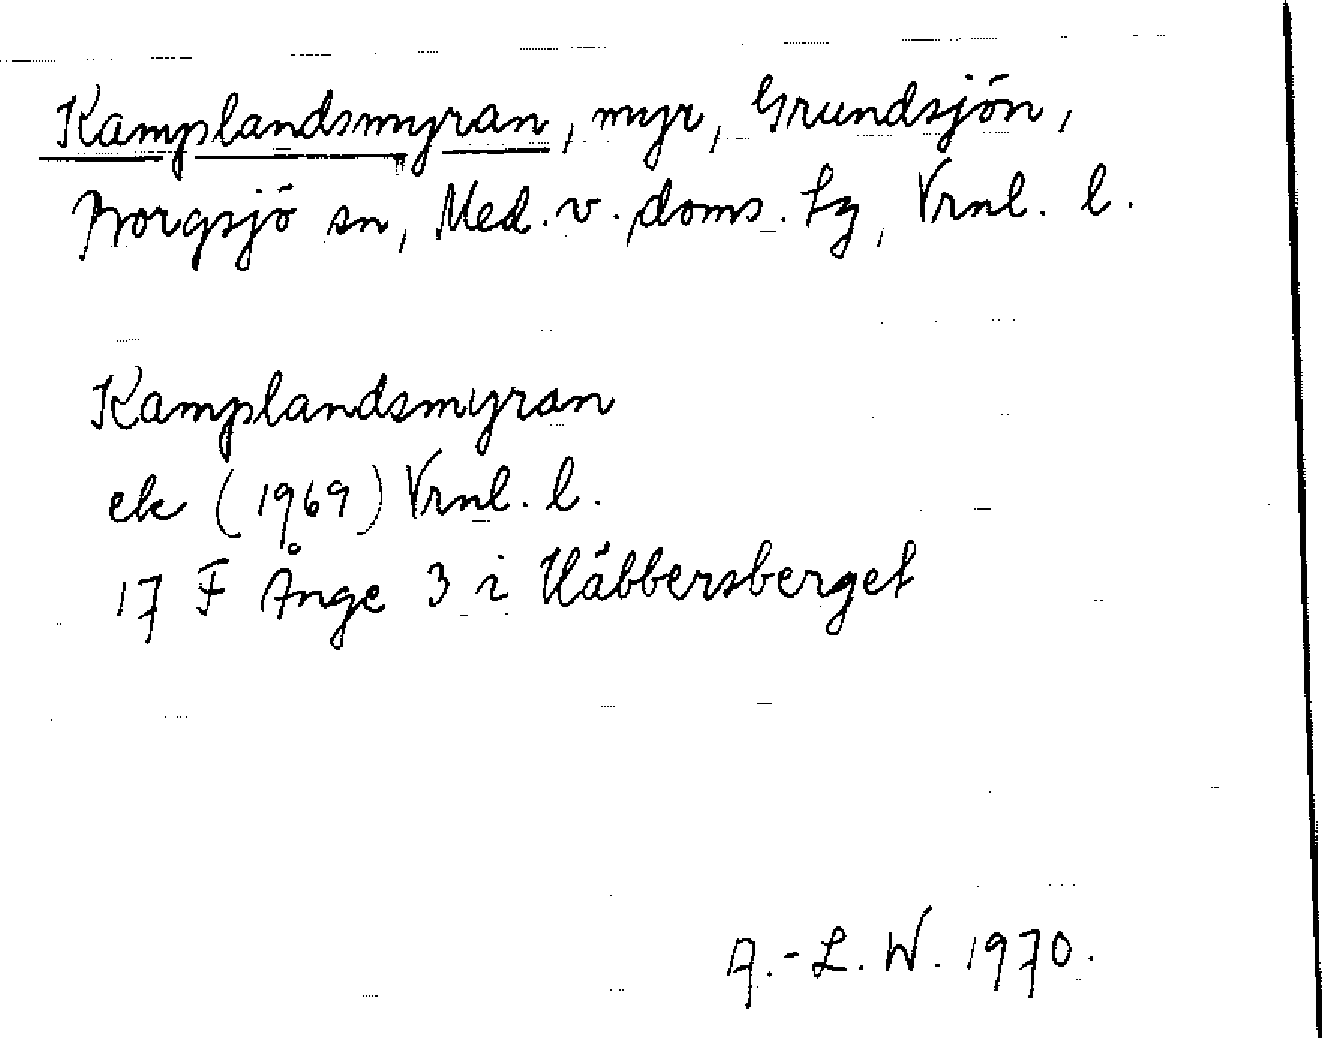 Kamplandsmyran, myr, Grundsjön,
Borgsjö sn, Med. v. doms. tg, Vrnl. l.
Kamplandsmyran
ek (1969) Vrnl. l.
17 F Ånge 3 i Häbbersberget
A.-L. W. 1970.